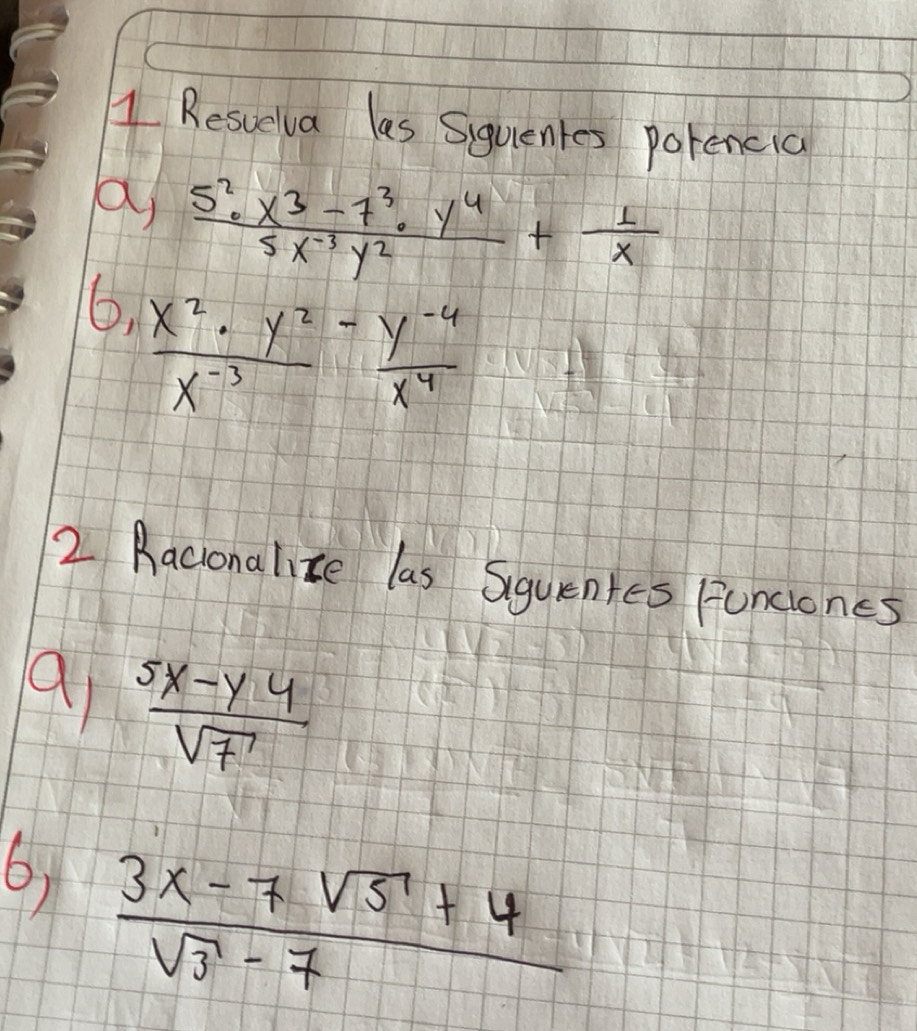 1 Resuelva las Siguientes potencia
a, 5². x3 - 7³. y⁴ + 1
5 x⁻³ y² x
b, x² . y² - y⁻⁴
x⁻³ x⁴
2 Racionalize las Siguientes Funciones
a, 5x - y 4
√7
b, 3x - 7 √5 + 4
√3 - 7